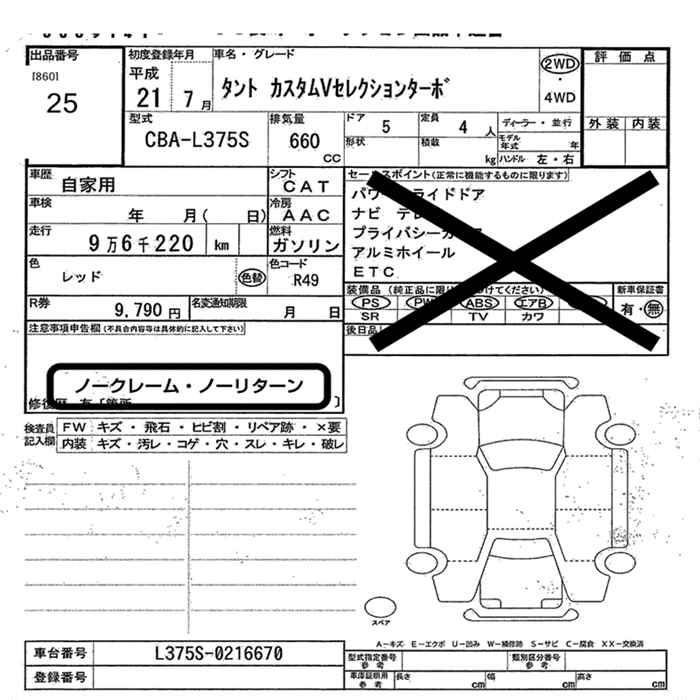 出品番号
[860]
25
初度登録年月
平成
21 7 月
車名・グレード
タント カスタムVセレクションターボ
2WD
・
4WD
評価点
外装 内装
型式
CBA-L375S
排気量
660
CC
ドア 5
定員 4 人
形状
積載 kg
ディーラー・並行
モデル年式 年
ハンドル 左・右
車歴 自家用
シフト CAT
車検 年 月( 日)
冷房 AAC
走行 9万6千220 km
燃料 ガソリン
色 レッド
色替
色コード R49
R券 9,790 円
名変通知期限 月 日
セールスポイント(正常に機能するものに限ります)
ナビ
アルミホイール
ETC
装備品
PS PW ABS エアB
SR TV カワ
新車保証書
有・無
後日品
注意事項申告欄(不具合内容等は具体的に記入して下さい)
ノークレーム・ノーリターン
検査員
記入欄
FW キズ・飛石・ヒビ割・リペア跡・×要
内装 キズ・汚レ・コゲ・穴・スレ・キレ・破レ
スペア
A―キズ E―エクボ U―凹み W―補修跡 S―サビ C―腐食 XX―交換済
車台番号 L375S-0216670
登録番号
型式指定番号
参考
類別区分番号
参考
車庫証明用
参考
長さ cm 幅 cm 高さ cm